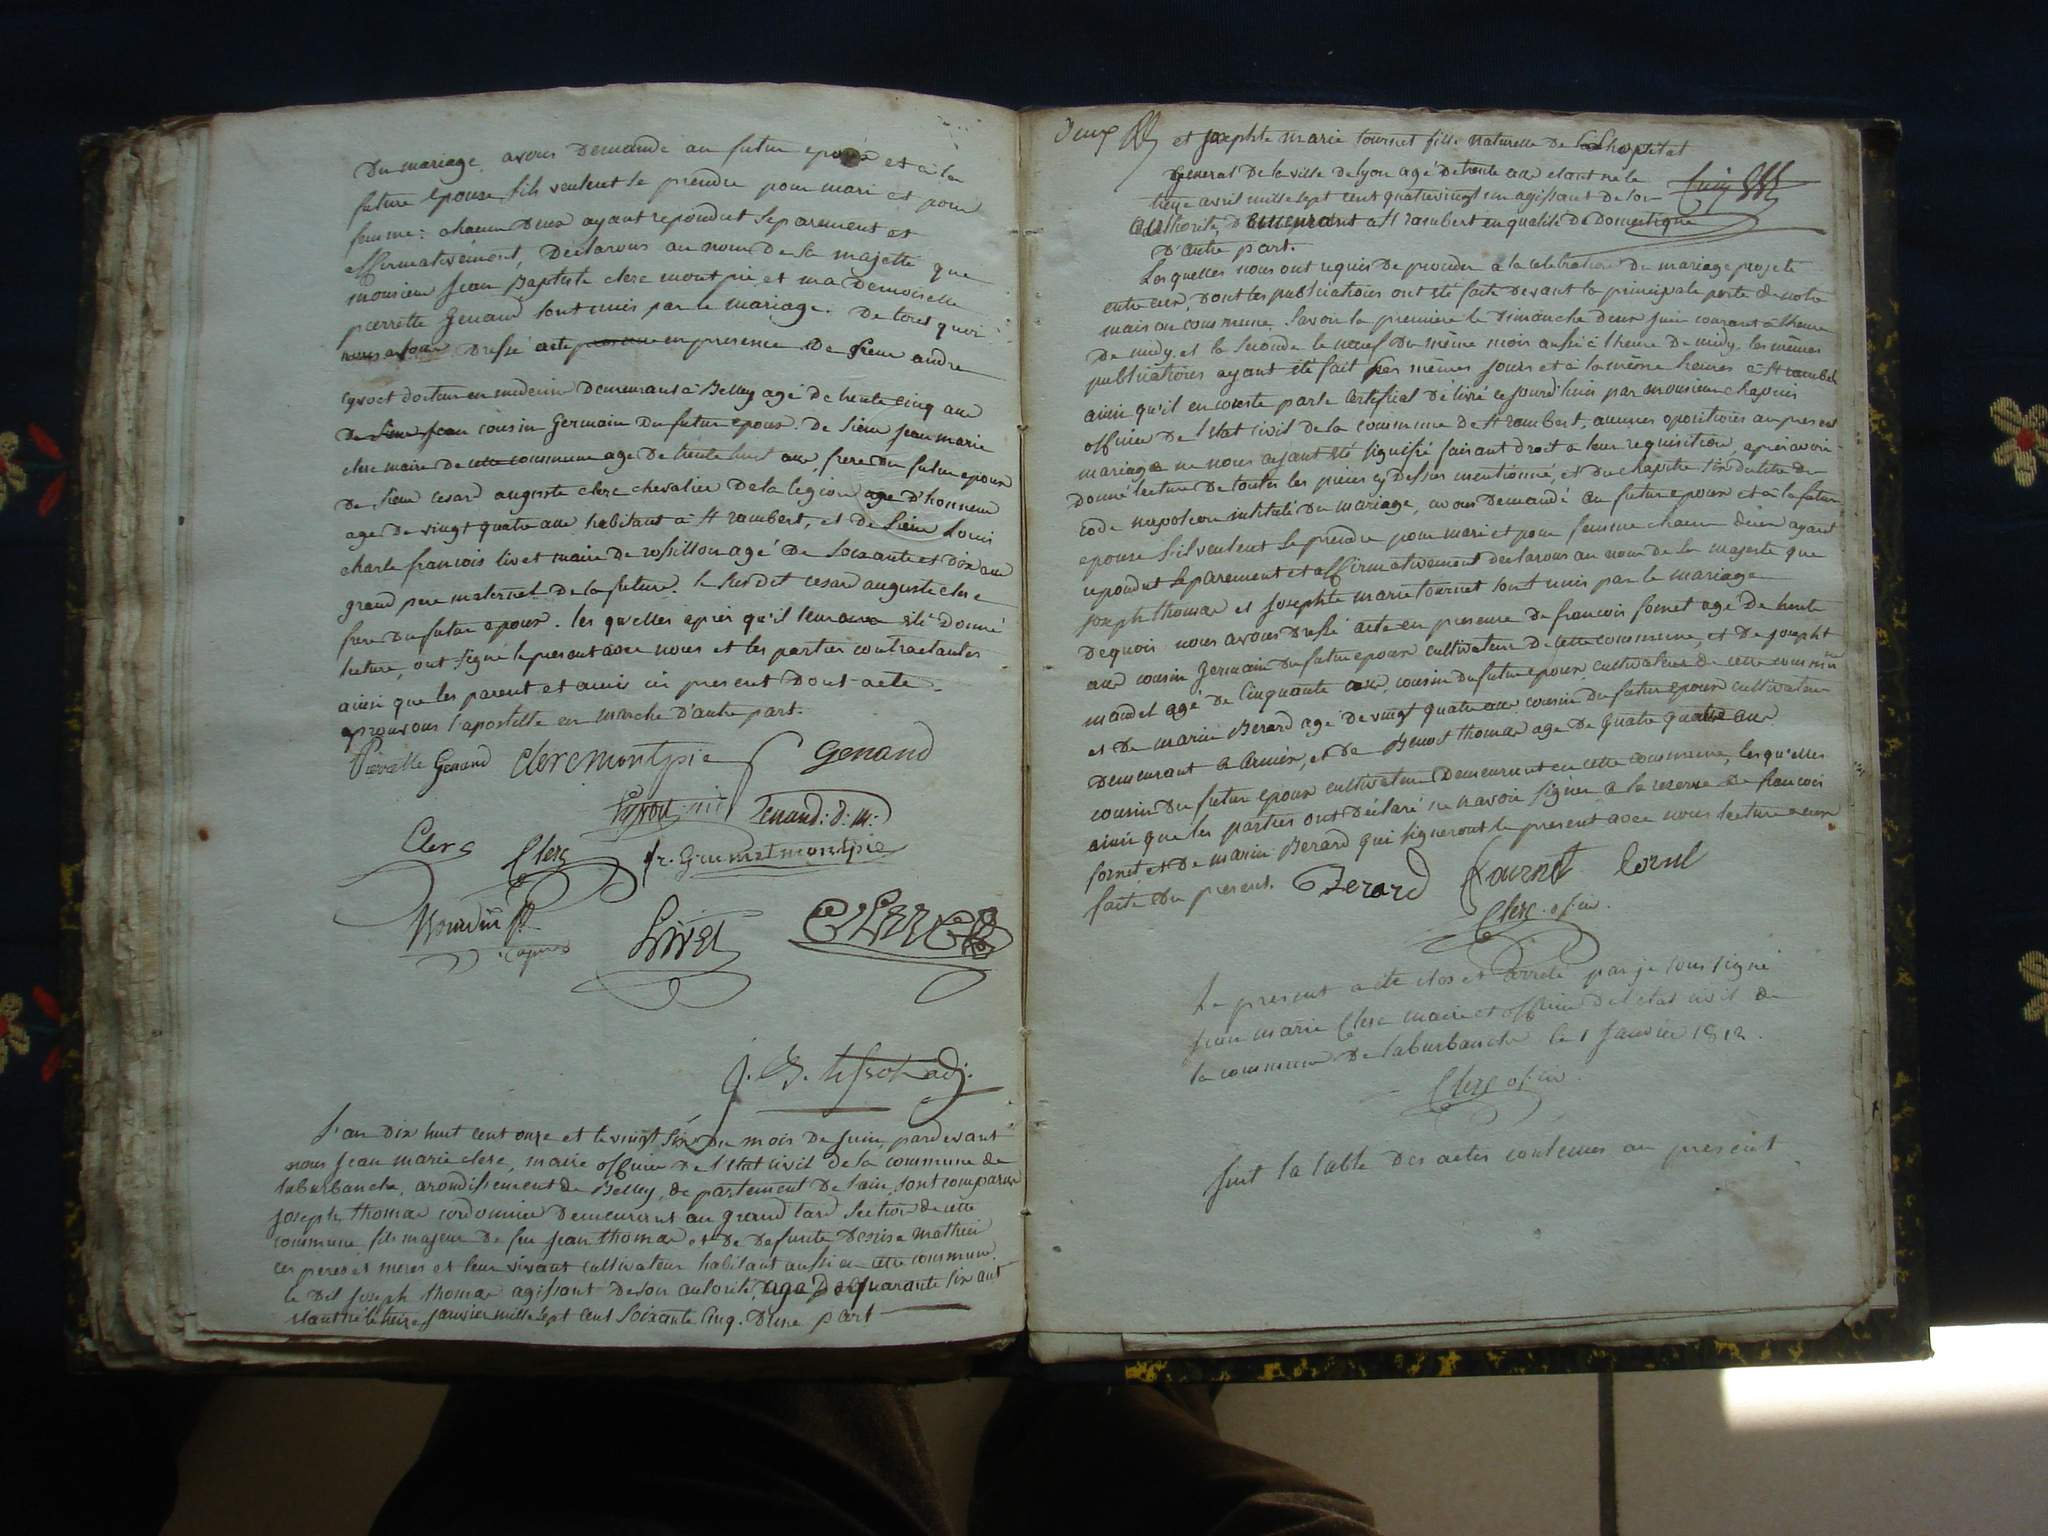 Du mariage, avons Demandé au futur epoux et à la
future epouse sils veulent se prendre pour mari et pour
femme: chacun Deux ayant repondut separement et
affirmativement, Declarons au nom de sa majesté que
monsieur jean Baptiste clerc montpie et ma Demoiselle
pierrette Genand sont unis par le mariage. De tout quoi
nous avons Dressé acte en presence De sieur andre
cyvoct docteur en medecine Demeurant à Belley agé de trente cinq ans
cousin Germain Du futur epoux. De sieur jean marie
clerc maire de cette commune age De trente huit ans, frere Du futur epoux
De sieur cesard auguste clerc chevalier De la legion d'honneur
age De vingt quatre ans habitant à St rambert, et de sieur Louis
charle francois livet maire de rossillon agé De soixante et Dix ans
grand pere maternel De la future. le susdit cesar auguste clerc
frere Du futur epoux. les quelles après qu'il leur a été Donné
lecture, ont signé le present avec nous et les parties contractantes
ainsi que les parent et amis ici present Dont acte.
aprouvons l'apostille en marche D'autre part.
Genand Clercmontpie Genand
Genand: D: m:
Clerc Clerc
Livet CLERC
L'an Dix huit cent onze et le vingt six Du mois De Juin, pardevant
nous jean marie clerc, maire officier De l'etat civil De la commune de
laburbanche, arondissement De Belley, departement De lain, sont comparus
joseph thomas cordonnier Demeurant au grand tard section de cette
commune, fils majeur De feu jean thomas et De Defunte Denise mathieu
ces peres et meres et leur vivant cultivateur habitant aussi en cette commune.
le Dit joseph thomas agissant De son autorité, agé De quarante six ans
etant né le treize janvier mille sept cent soixante cinq. D'une part
Deux et josephte marie tournet fille naturelle De l'hopital
General De la ville de lyon agé De trente ans etant né le
avril mille sept cent quatrevingt un agissant De son
authorité, Demeurant à St rambert en qualité De Domestique
D'autre part.
Lesquelles nous ont requis De proceder à la celebration Du mariage projeté
entre eux, Dont les publications ont été faite Devant la principale porte de notre
maison commune, savoir la premiere le Dimanche Deux juin courant à lheure
De midy et la seconde le neuf Du même mois aussi à lheure De midy. les mêmes
publications ayant été fait les mêmes jours et à la même heures à St rambert
ainsi qu'il en conste par le certificat Délivré ce jourd'huis par monsieur chapuis
officier De l'etat civil de la commune de St rambert, aucunes opositions au present
mariage ne nous ayant été signifié faisant droit à leur requisition, après avoir
Donné lecture De toutes les pieces cy Dessus mentionné, et Du chapitre six du titre du
code napoleon intitulé Du mariage, avons Demandé au futur epoux et à la future
epouse s'ils veulent se prendre pour mari et pour femme chacun deux ayant
repondut separement et affirmativement declarons au nom de sa majesté que
joseph thomas et josephte marie tournet sont unis par le mariage
De quoi nous avons Dressé acte en presence de francois fornet agé De trente
ans cousin germain Du futur epoux cultivateur De cette commune, et De joseph
agé De Cinquante ans, cousin du futur epoux cultivateur de cette commune
et De marin Berard agé De vingt quatre ans cousin Du futur epoux cultivateur
Demeurant à, et De Benoit thomas age De quatre ans
cousin Du futur epoux cultivateur Demeurant en cette commune, les qu'elles
ainsi que les parties ont Déclaré ne savoir signer à la reserve De francois
fornet et De marin Berard qui signeront le present avec nous lecture a eux
faite Du present. Berard fournet
Clerc of. civ.
Le present acte clos et arreté par je soussigné
jean marie Clerc maire et officier De l'etat civil de
la commune De laburbanche le 1 janvier 1812.
Clerc of. civ.
suit la table Des actes contenus au present